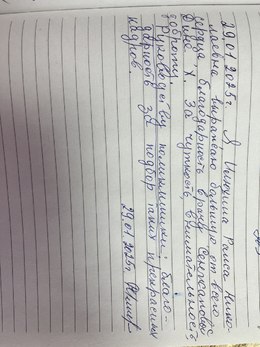 29.01.2025г. Я, Илюхина Раиса Нико-
лаевна выражаю большую от всего
сердца, благодарность врачу
Дине Х. За чуткость, внимательность
доброту.
Руководству поликлиники: благо-
дарность за подбор таких прекрасных
кадров.
29.01.2025г.